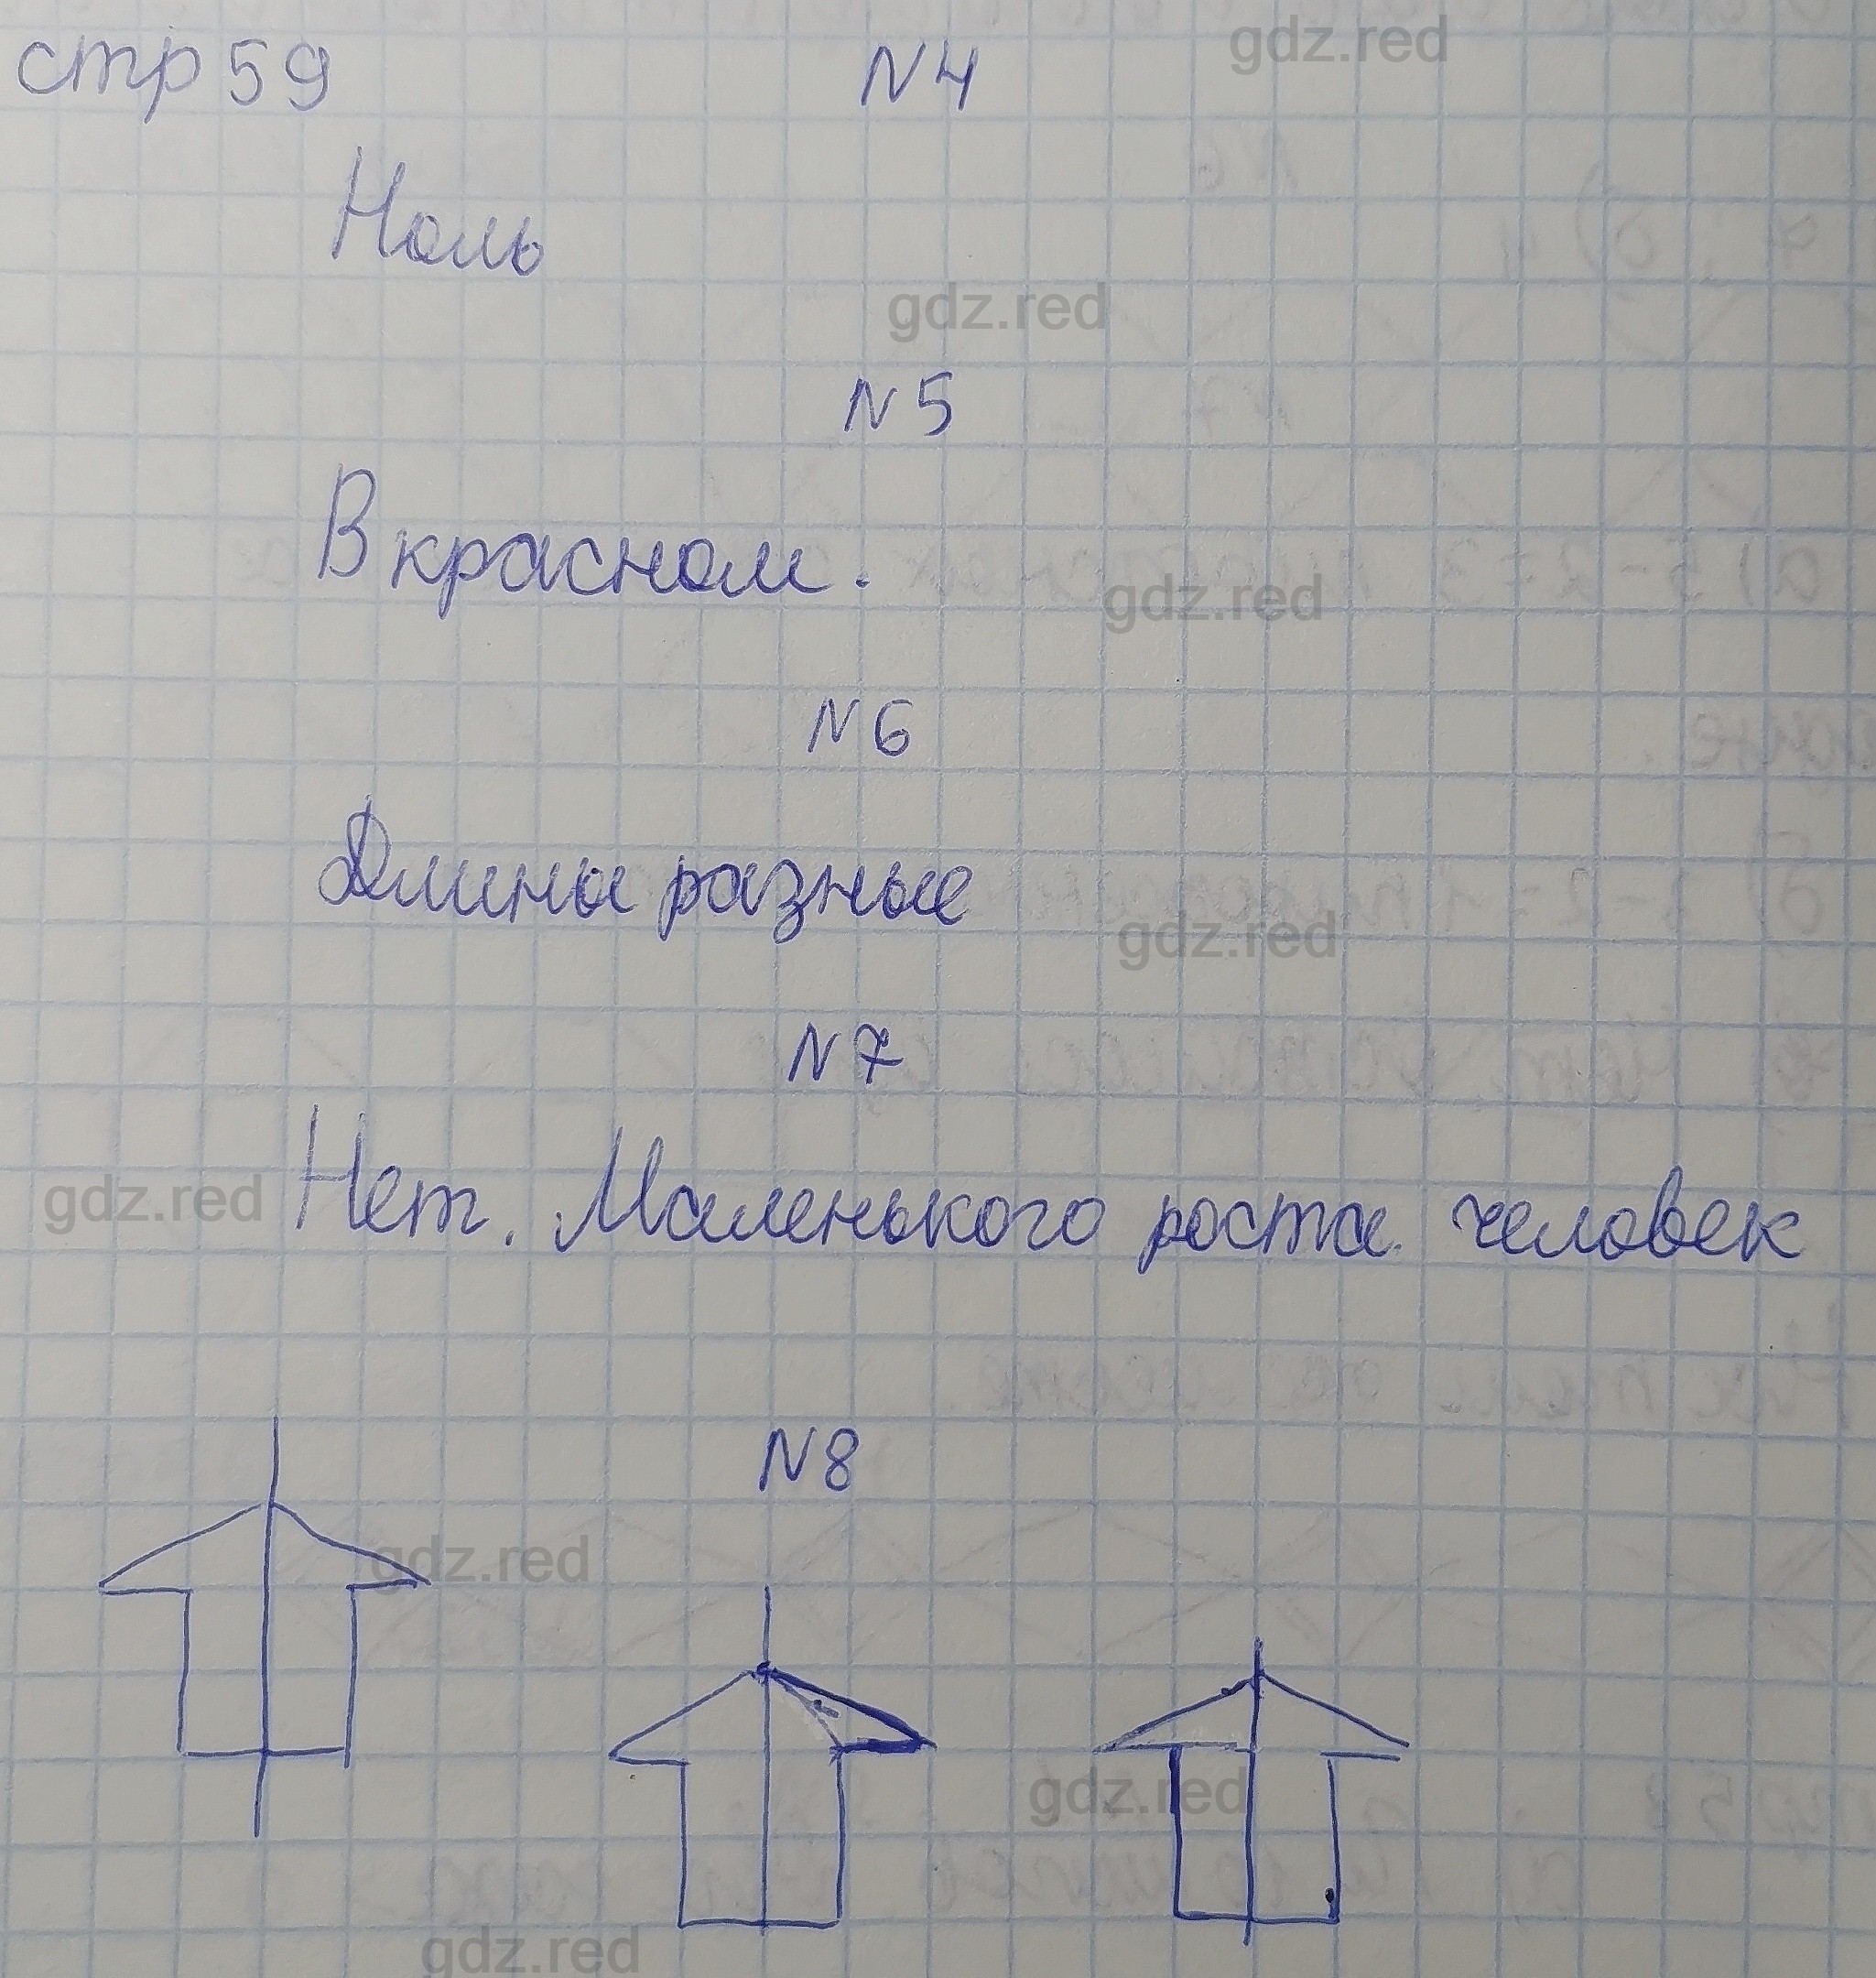 стр 59 N4 gdz.red
Ноль
gdz.red
N5
В красном.
gdz.red
N6
Длины разные
gdz.red
N7
gdz.red Нет. Маленького роста человек
N8
gdz.red
gdz.red
gdz.red